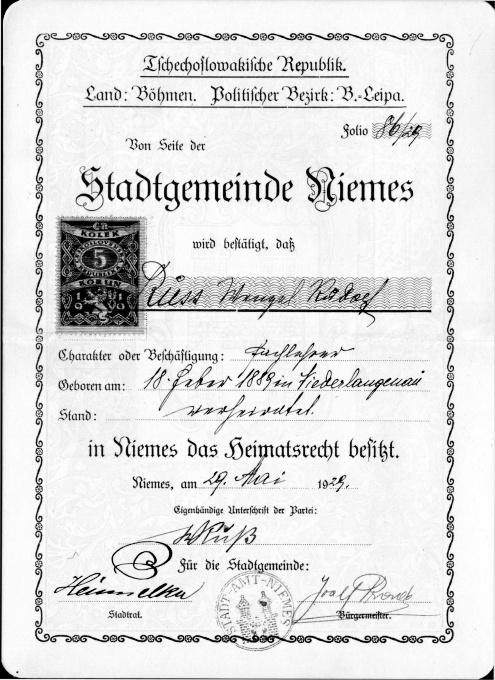 Tschechoslowakische Republik.
Land: Böhmen. Politischer Bezirk: B.-Leipa.
Folio 86/29
Von Seite der
Stadtgemeinde Niemes
wird bestätigt, daß
ČR
KOLEK
5
KORUN
Russ Wenzel Rudolf
Charakter oder Beschäftigung: Fachlehrer
Geboren am: 18. Feber 1889 in Niederlangenau
Stand: verheiratet.
in Niemes das Heimatsrecht besitzt.
Niemes, am 29. Mai 1929.
Eigenhändige Unterschrift der Partei:
WRuß
Für die Stadtgemeinde:
STADT-AMT-NIEMES
Stadtrat. Bürgermeister.